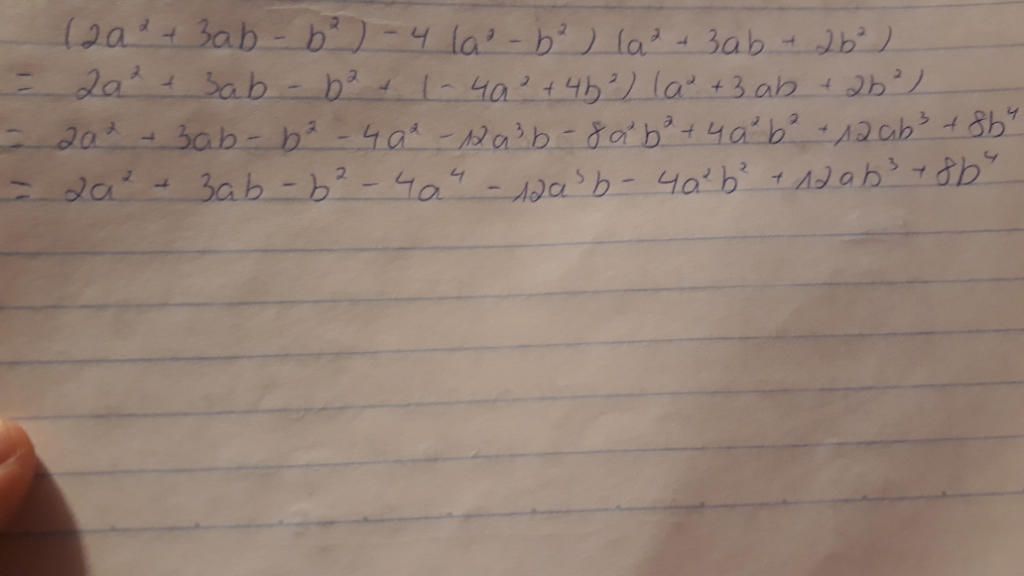 (2a² + 3ab - b²) - 4 (a² - b²) (a² + 3ab + 2b²)
= 2a² + 3ab - b² + (- 4a² + 4b²) (a² + 3ab + 2b²)
= 2a² + 3ab - b² - 4a² - 12a³b - 8a²b² + 4a²b² + 12ab³ + 8b⁴
= 2a² + 3ab - b² - 4a⁴ - 12a³b - 4a²b² + 12ab³ + 8b⁴